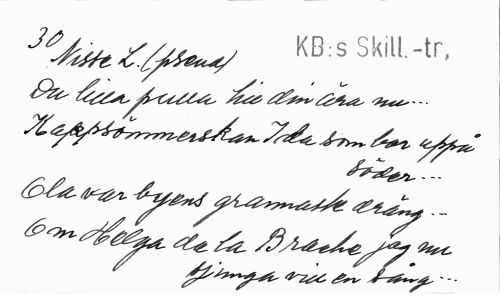 30
Nisse L. (pseud)
KB:s Skill.-tr,
Du lilla pulla hie din ära nu...
Kappsömmerskan Ida som bor uppå
söder...
Ola var byens grannaste dräng...
Om Helga de la Brache jag nu
sjunga vill en sång...